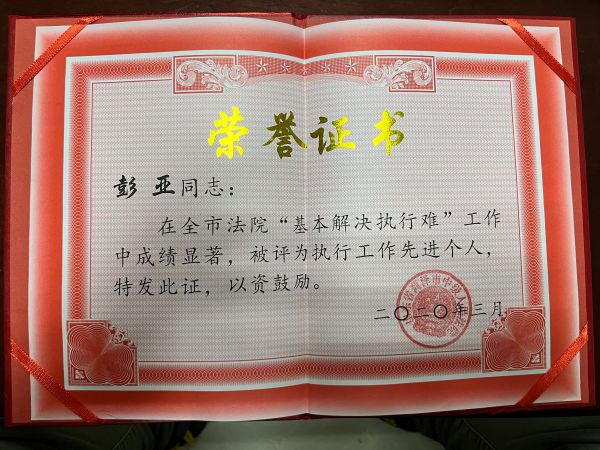 荣誉证书
彭亚同志：
在全市法院“基本解决执行难”工作
中成绩显著，被评为执行工作先进个人，
特发此证，以资鼓励。
二〇二〇年三月